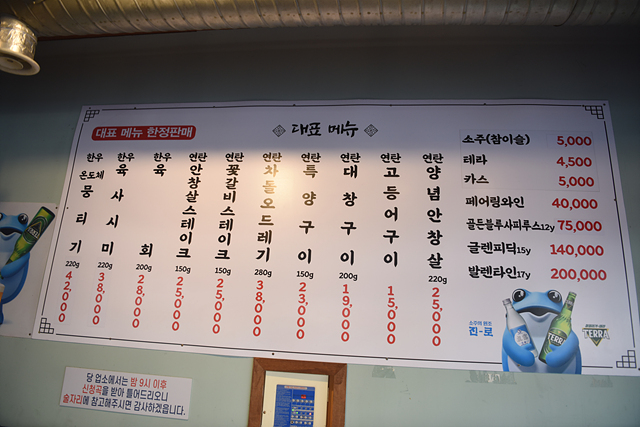 대표 메뉴 한정판매
대표 메뉴
한우 온도체 뭉티기 220g 42,000
한우 육사시미 220g 38,000
한우 육회 200g 28,000
연탄 안창살스테이크 150g 25,000
연탄 꽃갈비스테이크 150g 25,000
연탄 차돌오드레기 280g 38,000
연탄 특양구이 150g 23,000
연탄 대창구이 200g 19,000
연탄 고등어구이 15,000
연탄 양념안창살 220g 25,000
소주(참이슬) 5,000
테라 4,500
카스 5,000
페어링와인 40,000
골든블루사피루스12y 75,000
글렌피딕15y 140,000
발렌타인17y 200,000
소주의 원조
진-로
TERRA
당 업소에서는 밤 9시 이후
신청곡을 받아 틀어드리오니
술자리에 참고해주시면 감사하겠습니다.